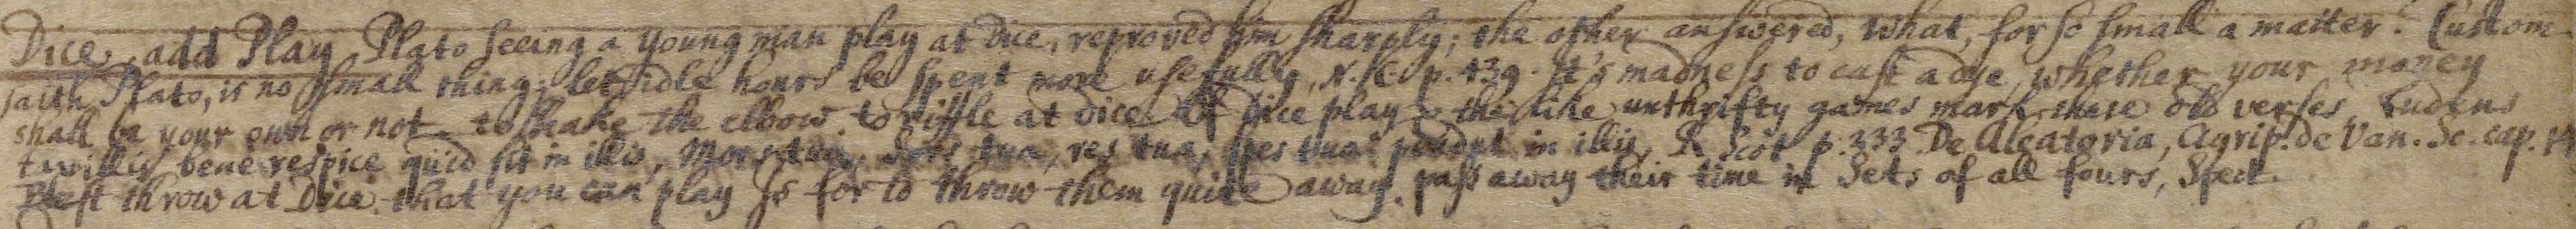 Dice, add Play, Plato seeing a young man play at dice, reproved him sharply; the other answered, what, for so small a matter? Custom
saith Plato, is no small thing; let idle hours be spent more usefully, N.C. p. 439. It's madness to cast a dye, whether your money
shall be your own or not. to shake the elbow. to riffle at dice. Of Dice play & the like unthrifty games mark these old verses Ludens
taxillis bene respice quid sit in illis, Mors tua, Sors tua, res tua, spes tua pendet in illis, R. Scot p. 233. De Aleatoria, Agrip. de Van. Sc. cap.
Best throw at Dice that you can play Is for to throw them quite away. pass away their time in Sets of all fours, Spect.